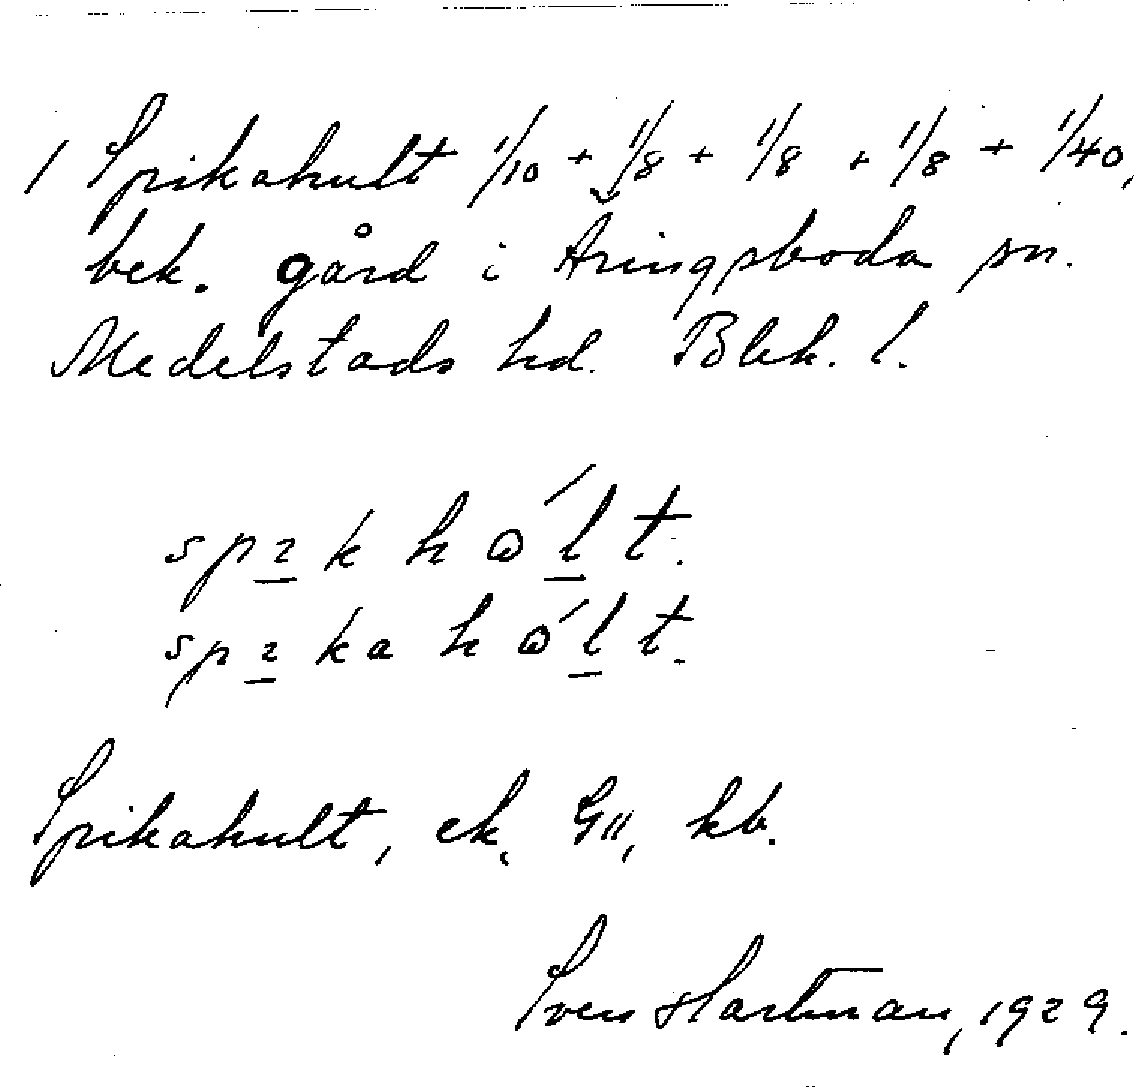 1 Spikahult 1/10 + 1/8 + 1/8 + 1/8 + 1/40,
bek. gård i Aringsboda sn.
Medelstads hd. Blek. l.
spɩkhɷ́lt.
spɩkahɷ́lt.
Spikahult, ek, G11, kb.
Sven Hartman, 1929.